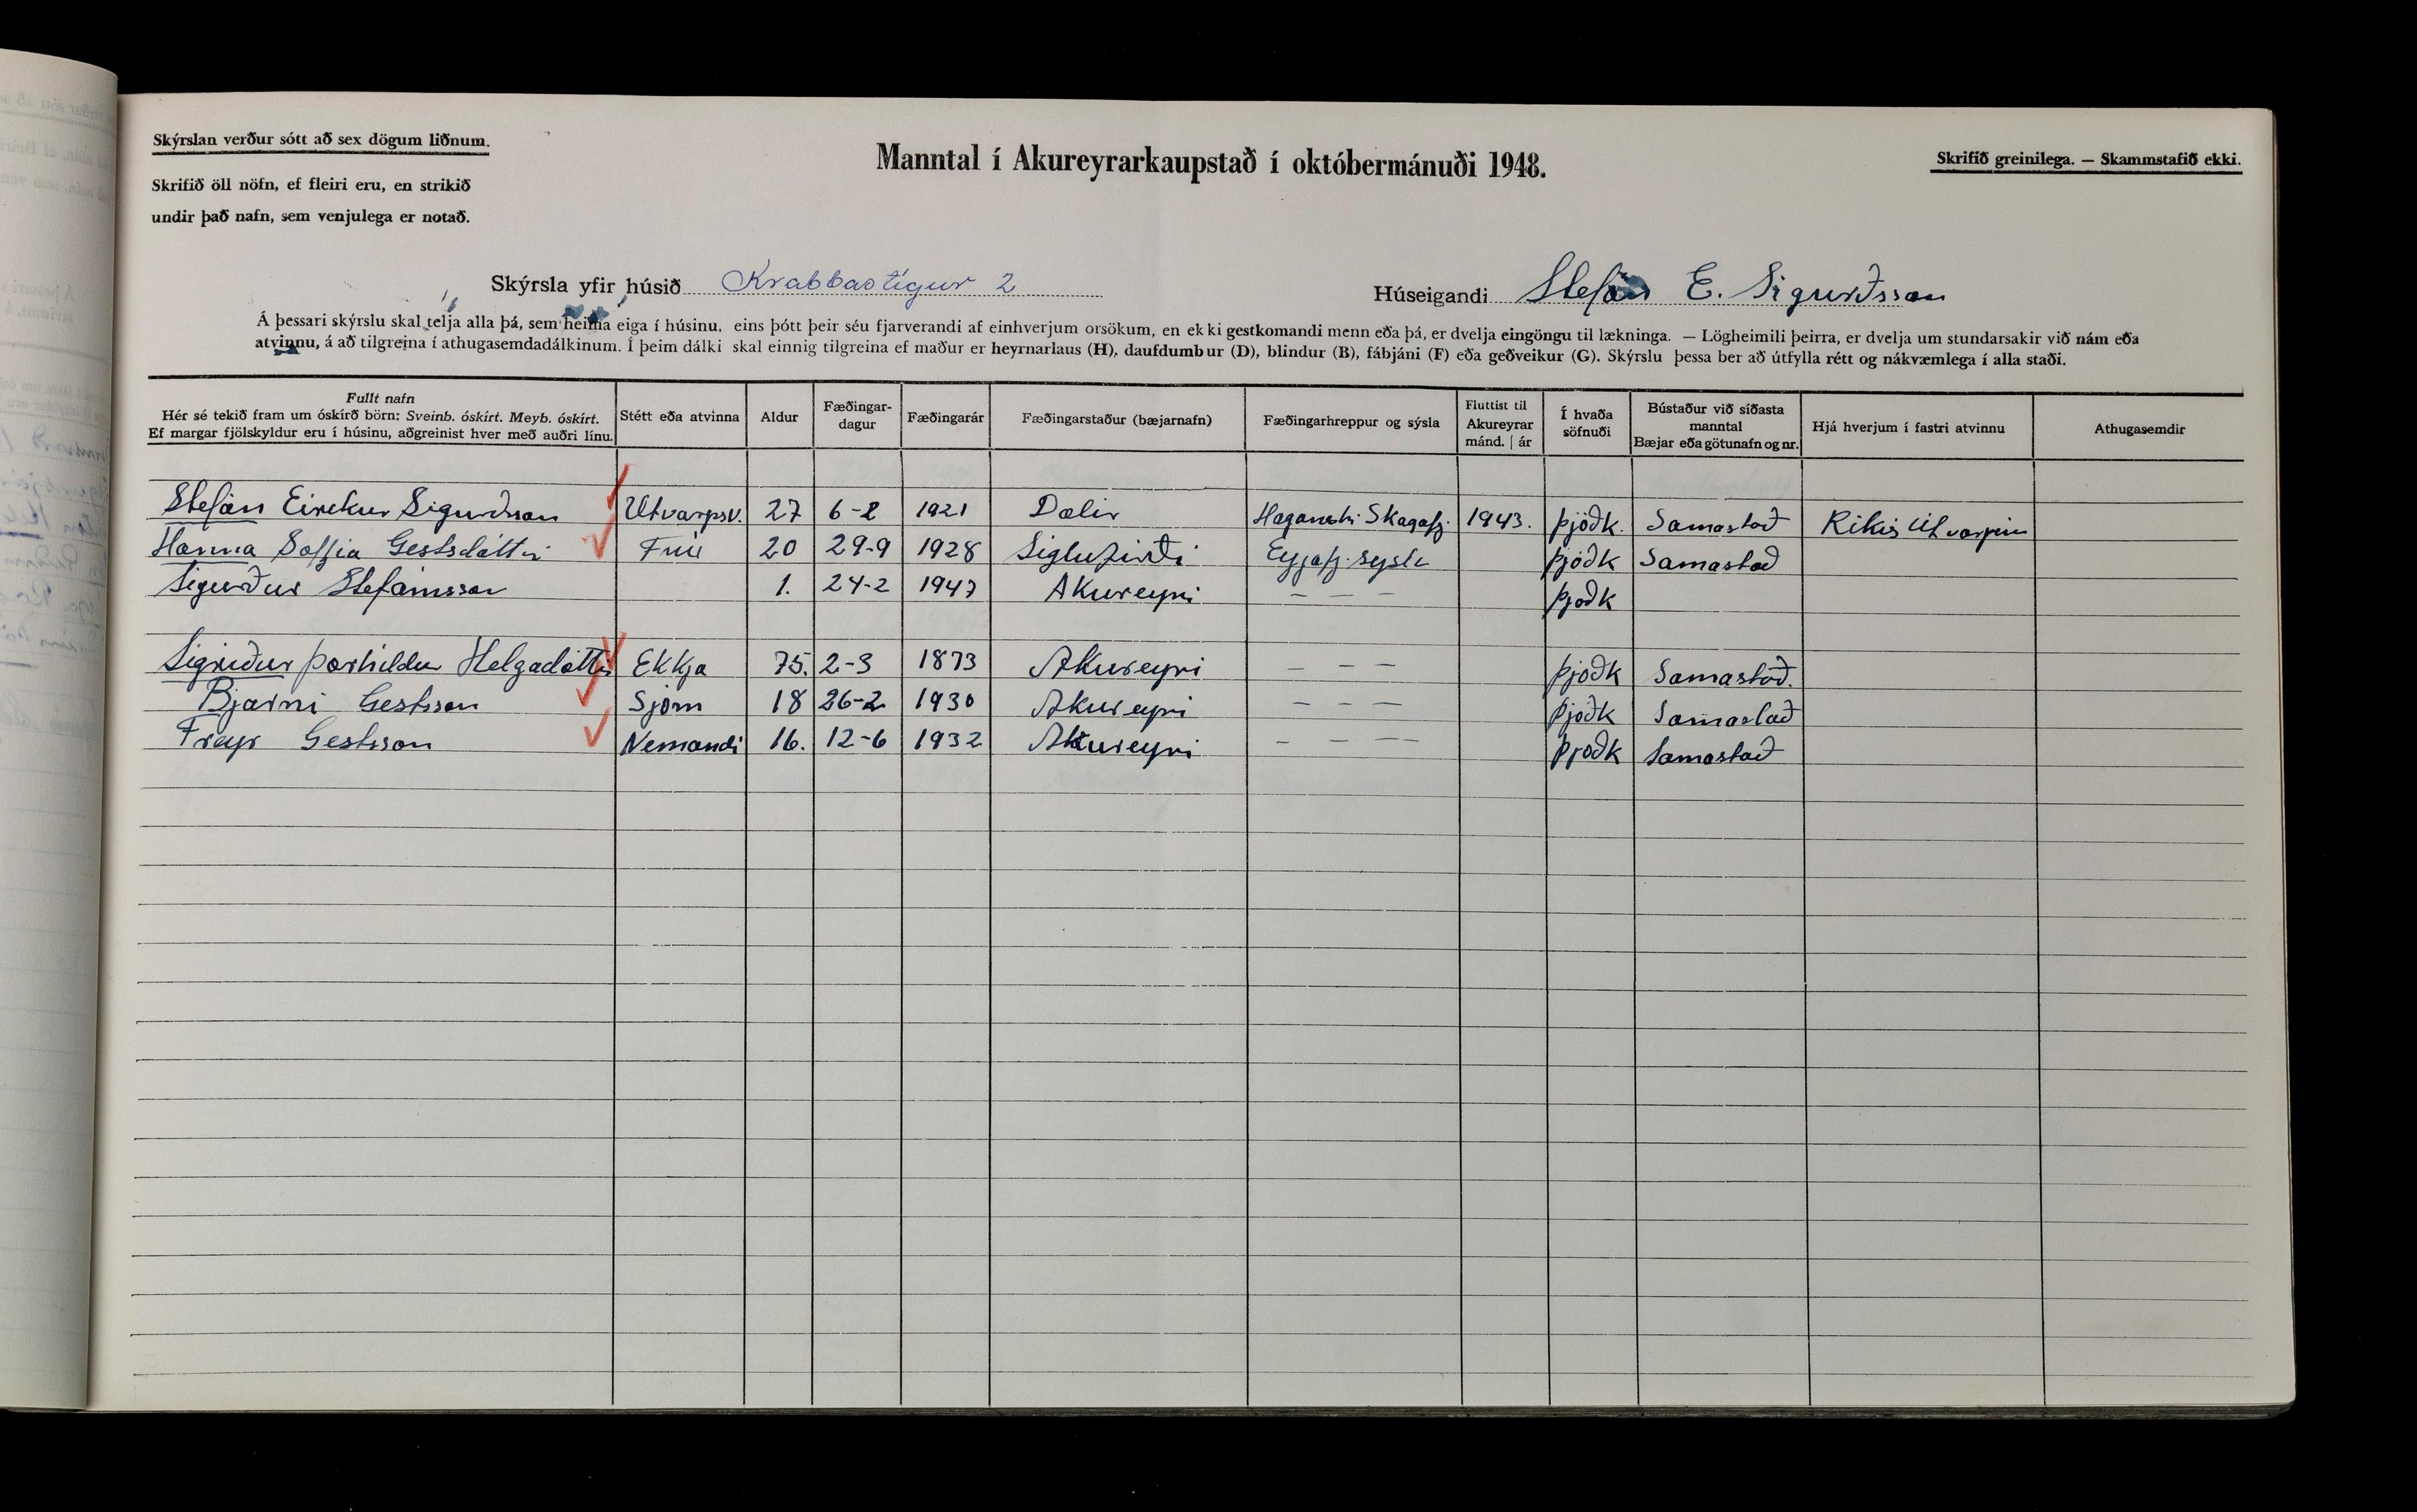 Skýrslan verður sótt að sex dögum liðnum.
Skrifið öll nöfn, ef fleiri eru, en strikið
undir það nafn, sem venjulega er notað.
Manntal í Akureyrarkaupstað í októbermánuði 1948.
Skrifið greinilega. — Skammstafið ekki.
Skýrsla yfir húsið Krabbastígur 2
Húseigandi Stefán E. Sigurðsson
Á þessari skýrslu skal telja alla þá, sem heima eiga í húsinu, eins þótt þeir séu fjarverandi af einhverjum orsökum, en ekki gestkomandi menn eða þá, er dvelja eingöngu til lækninga. — Lögheimili þeirra, er dvelja um stundarsakir við nám eða
atvinnu, á að tilgreina í athugasemdadálkinum. Í þeim dálki skal einnig tilgreina ef maður er heyrnarlaus (H), daufdumbur (D), blindur (B), fábjáni (F) eða geðveikur (G). Skýrslu þessa ber að útfylla rétt og nákvæmlega í alla staði.
Fullt nafn
Hér sé tekið fram um óskírð börn: Sveinb. óskírt. Meyb. óskírt.
Ef margar fjölskyldur eru í húsinu, aðgreinist hver með auðri línu.
Stétt eða atvinna
Aldur
Fæðingar-
dagur
Fæðingarár
Fæðingarstaður (bæjarnafn)
Fæðingarhreppur og sýsla
Fluttist til
Akureyrar
mánd. | ár
Í hvaða
söfnuði
Bústaður við síðasta
manntal
Bæjar eða götunafn og nr.
Hjá hverjum í fastri atvinnu
Athugasemdir
Stefán Eirekur Sigurðsson Útvarpsv. 27 6-2 1921 Dalir Haganeshr. Skagafj. 1943. þjóðk. Samastað Ríkis Útvarpinu
Hanna Soffia Gestsdóttir Frú 20 29-9 1928 Siglufirði Eyjafj. sýslu þjóðk Samastað
Sigurður Stefánsson 1. 24-2 1947 Akureyri — — — þjóðk
Sigríður Þorhildur Helgadóttir Ekkja 75. 2-3 1873 Akureyri — — — þjóðk Samastað.
Bjarni Gestsson Sjóm 18 26-2 1930 Akureyri — — — þjóðk Samastað
Freyr Gestsson Nemandi 16. 12-6 1932 Akureyri — — — þjóðk Samastað